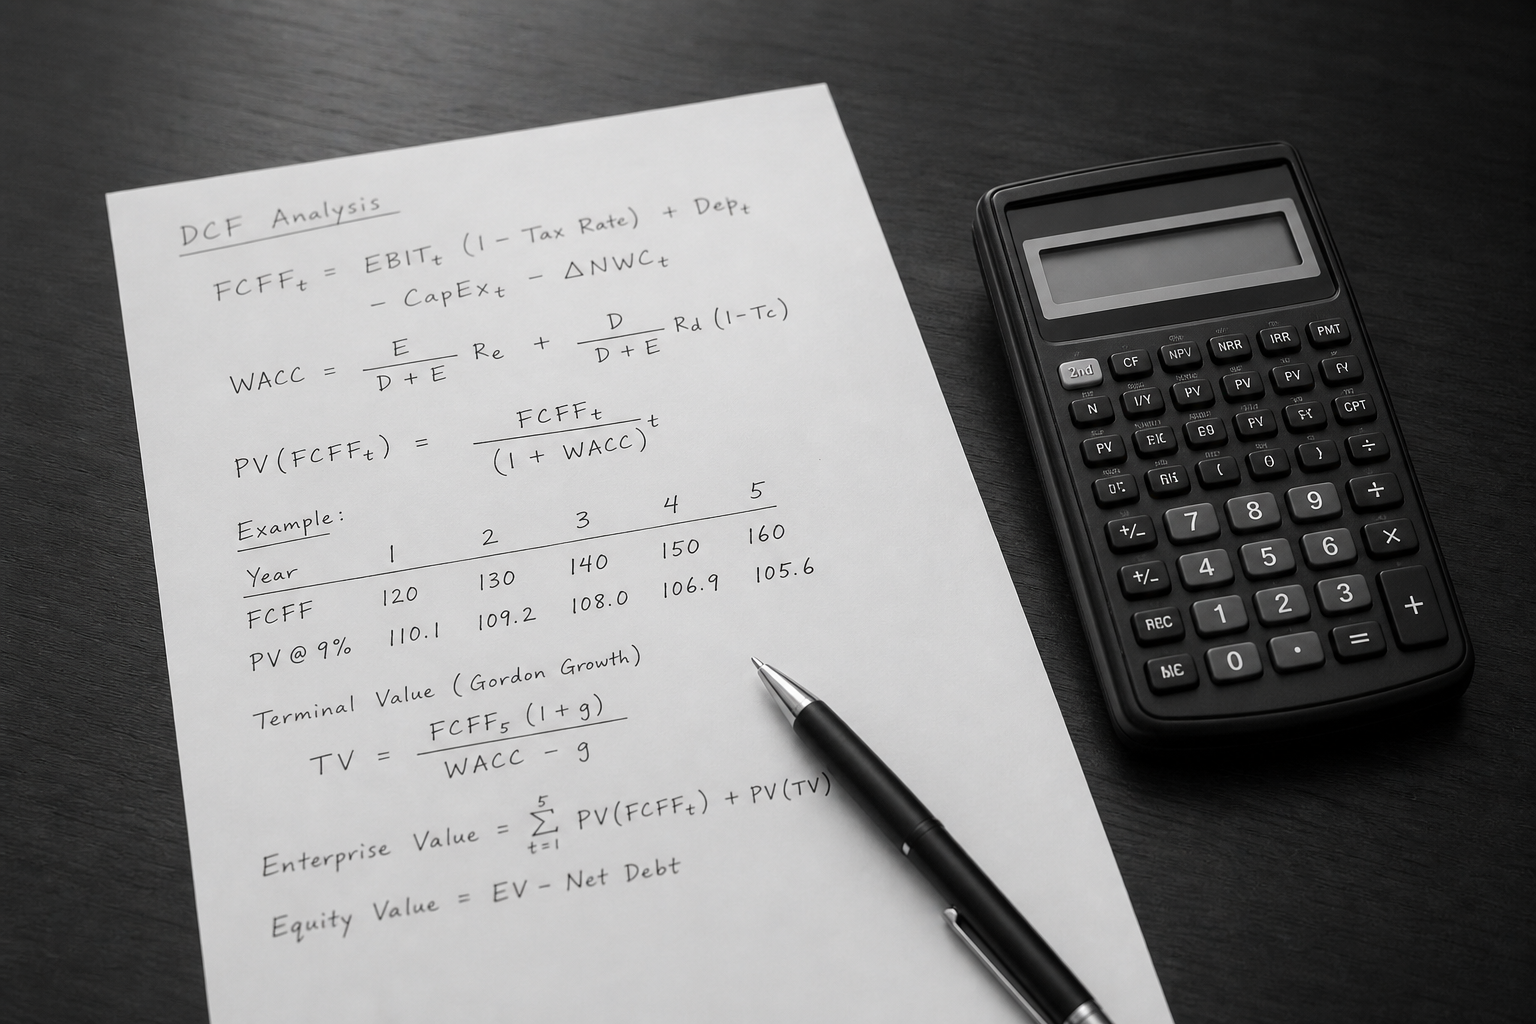 DCF Analysis
FCFFt = EBITt (1 - Tax Rate) + Dept
- CapExt - ΔNWCt
WACC = E / (D + E) Re + D / (D + E) Rd (1-Tc)
PV(FCFFt) = FCFFt / (1 + WACC)^t
Example:
Year 1 2 3 4 5
FCFF 120 130 140 150 160
PV @ 9% 110.1 109.2 108.0 106.9 105.6
Terminal Value (Gordon Growth)
TV = FCFF5 (1+g) / WACC - g
Enterprise Value = 5 Σ t=1 PV(FCFFt) + PV(TV)
Equity Value = EV - Net Debt
2nd CF NPV NRR IRR PMT
N I/Y PV PV PV FV
PV PV CPT
( 0 ) ÷
+/- 7 8 9 ÷
+/- 4 5 6 ×
REC 1 2 3 +
0 . =